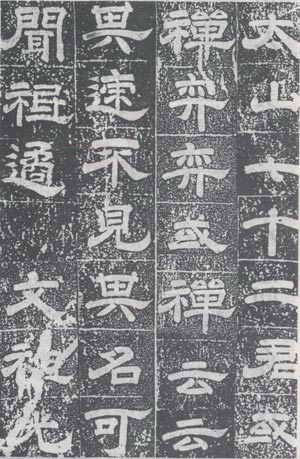 太山七十二君或
禪弈弈或禪云云
其迹不見其名可
聞祖遹 文祖此